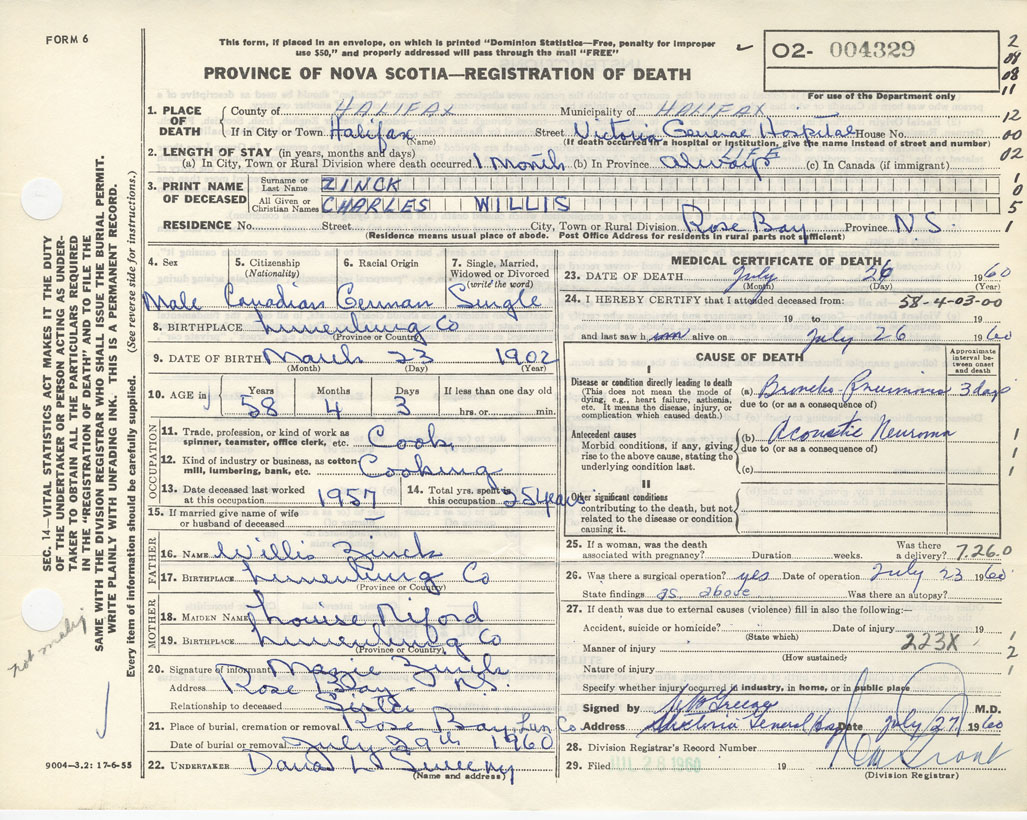 FORM 6
This form, if placed in an envelope, on which is printed "Dominion Statistics—Free, penalty for improper
use $50," and properly addressed will pass through the mail "FREE"
02- 004329
For use of the Department only
PROVINCE OF NOVA SCOTIA—REGISTRATION OF DEATH
2
04
08
11
12
00
02
1
0
5
1
1. PLACE OF DEATH
County of HALIFAX Municipality of HALIFAX
If in City or Town Halifax Street Victoria General Hospital House No.
(Name) (If death occurred in a hospital or institution, give the name instead of street and number)
2. LENGTH OF STAY (in years, months and days) LIFE
(a) In City, Town or Rural Division where death occurred 1 Month (b) In Province always (c) In Canada (if immigrant)
3. PRINT NAME OF DECEASED
Surname or Last Name ZINCK
All Given or Christian Names CHARLES WILLIS
RESIDENCE No. Street City, Town or Rural Division Rose Bay Province N.S.
(Residence means usual place of abode. Post Office Address for residents in rural parts not sufficient)
4. Sex 5. Citizenship (Nationality) 6. Racial Origin 7. Single, Married, Widowed or Divorced (write the word)
Male Canadian German Single
8. BIRTHPLACE Lunenburg Co
(Province or Country)
9. DATE OF BIRTH March 23 1902
(Month) (Day) (Year)
10. AGE in Years Months Days If less than one day old
58 4 3 hrs. or min.
OCCUPATION
11. Trade, profession, or kind of work as spinner, teamster, office clerk, etc. Cook
12. Kind of industry or business, as cotton mill, lumbering, bank, etc. Cooking
13. Date deceased last worked at this occupation 1957
14. Total yrs. spent in this occupation 25 years
15. If married give name of wife or husband of deceased —
FATHER
16. NAME Willis Zinck
17. BIRTHPLACE Lunenburg Co
(Province or Country)
MOTHER
18. MAIDEN NAME Louise
19. BIRTHPLACE Lunenburg Co
(Province or Country)
20. Signature of informant Zinck
Address Rose Bay N.S.
Relationship to deceased Sister
21. Place of burial, cremation or removal Rose Bay Lun Co.
Date of burial or removal July 29th 1960
22. UNDERTAKER
(Name and address)
MEDICAL CERTIFICATE OF DEATH
23. DATE OF DEATH July 26 1960
(Month) (Day) (Year)
24. I HEREBY CERTIFY that I attended deceased from: 58-4-03-00
19 to 19
and last saw him alive on July 26 1960
CAUSE OF DEATH
Approximate interval between onset and death
I
Disease or condition directly leading to death
(This does not mean the mode of dying, e.g., heart failure, asthenia, etc. It means the disease, injury, or complication which caused death.)
(a) Broncho-Pneumonia 3 days
due to (or as a consequence of)
Antecedent causes
Morbid conditions, if any, giving rise to the above cause, stating the underlying condition last.
(b) Acoustic Neuroma
due to (or as a consequence of)
(c)
1
1
1
II
Other significant conditions
contributing to the death, but not related to the disease or condition causing it.
25. If a woman, was the death associated with pregnancy? Duration weeks. Was there a delivery? 7.26.0
26. Was there a surgical operation? yes Date of operation July 23 1960
State findings as above Was there an autopsy?
27. If death was due to external causes (violence) fill in also the following:—
Accident, suicide or homicide? Date of injury 19
(State which)
Manner of injury 223X
(How sustained)
Nature of injury
1
2
1
Specify whether injury occurred in industry, in home, or in public place
Signed by M.D.
Address Victoria General Hosp Date July/27/1960
28. Division Registrar's Record Number
29. Filed JUL 28 1960 19
(Division Registrar)
SEC. 14—VITAL STATISTICS ACT MAKES IT THE DUTY
OF THE UNDERTAKER OR PERSON ACTING AS UNDER-
TAKER TO OBTAIN ALL THE PARTICULARS REQUIRED
IN THE "REGISTRATION OF DEATH" AND TO FILE THE
SAME WITH THE DIVISION REGISTRAR WHO SHALL ISSUE THE BURIAL PERMIT.
WRITE PLAINLY WITH UNFADING INK. THIS IS A PERMANENT RECORD.
Every item of information should be carefully supplied. (See reverse side for instructions.)
9004—3.2: 17-6-55